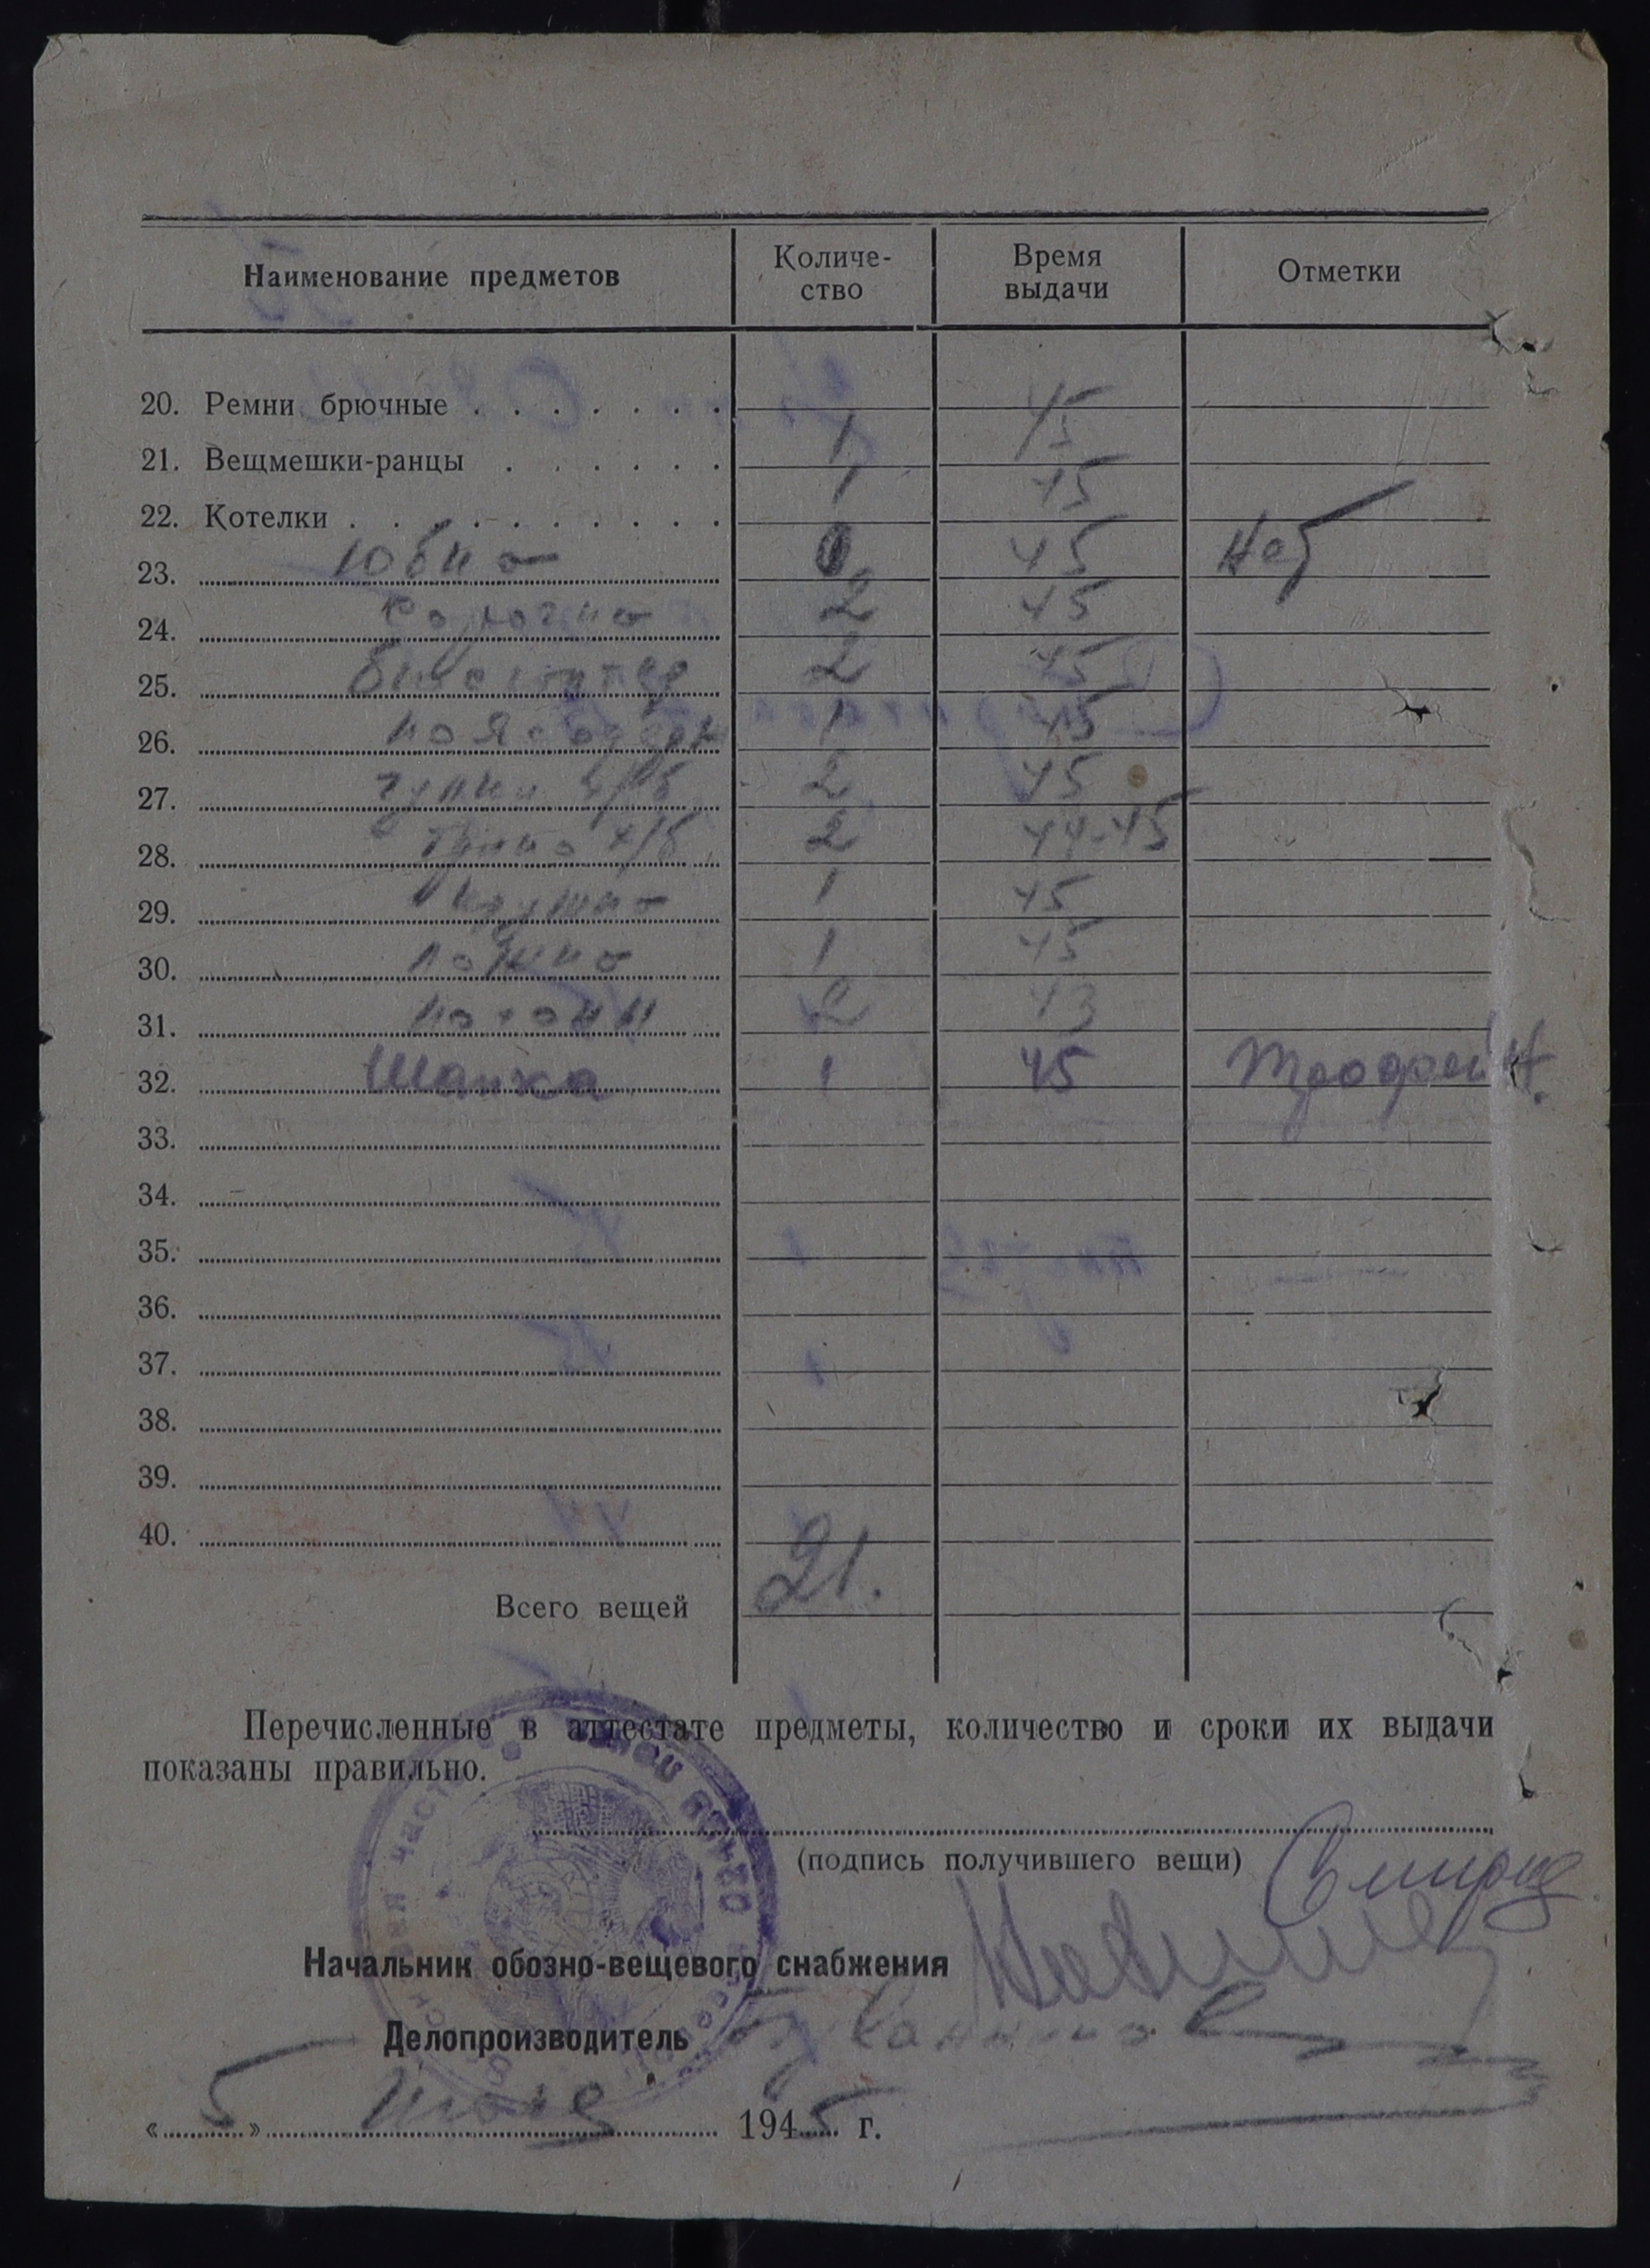 Наименование предметов Количе- ство Время выдачи Отметки
20. Ремни брючные . . . . . . . 45
21. Вещмешки-ранцы . . . . . . 1 45
22. Котелки . . . . . . . . . . 1 45
23. Юбка 45 Нет
24. Сорочка 2 45
25. Бюстгалтер 2 45
26. 1 45
27. Чулки х/б 2 45
28. Трико х/б 2 44-45
29. Кружка 1 45
30. Ложка 1 45
31. Погоны 2 43
32. Шапка 1 45 Трофейн.
33.
34.
35.
36.
37.
38.
39.
40.
Всего вещей 21.
Перечисленные в аттестате предметы, количество и сроки их выдачи
показаны правильно.
(подпись получившего вещи)
Начальник обозно-вещевого снабжения
Делопроизводитель
« 5 » 1945 г.